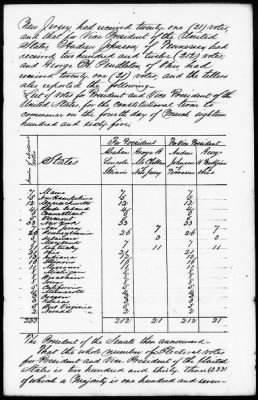 New Jersey had received twenty one (21) votes,
and that for Vice President of the United
States Andrew Johnson, of Tennessee had
received two hundred and twelve (212) votes,
and George H. Pendleton of Ohio had
received twenty one (21) votes, and the tellers
also reported the following
List of Votes for President and Vice President of the
United States, for the constitutional term to
commence on the fourth day of March eighteen
hundred and sixty five.
States
For President
For Vice President
Abraham Lincoln Illinois
George B. McClellan New Jersey
Andrew Johnson Tennessee
George H. Pendleton Ohio
7 Maine 7 7
5 New Hampshire 5 5
12 Massachusetts 12 12
4 Rhode Island 4 4
6 Connecticut 6 6
5 Vermont 5 5
33 New York 33 33
7 New Jersey 7 7
26 Pennsylvania 26 26
3 Delaware 3 3
7 Maryland 7 7
11 Kentucky 11 11
21 Ohio 21 21
13 Indiana 13 13
16 Illinois 16 16
11 Missouri 11 11
8 Michigan 8 8
8 Wisconsin 8 8
8 Iowa 8 8
5 California 5 5
4 Minnesota 4 4
3 Oregon 3 3
3 Kansas 3 3
5 West Virginia 5 5
2 Nevada 2 2
233 212 21 212 21
The President of the Senate then announced
That the whole number of Electoral votes
for President and Vice President of the United
States is two hundred and thirty three (233)
of which a Majority is one hundred and seven-